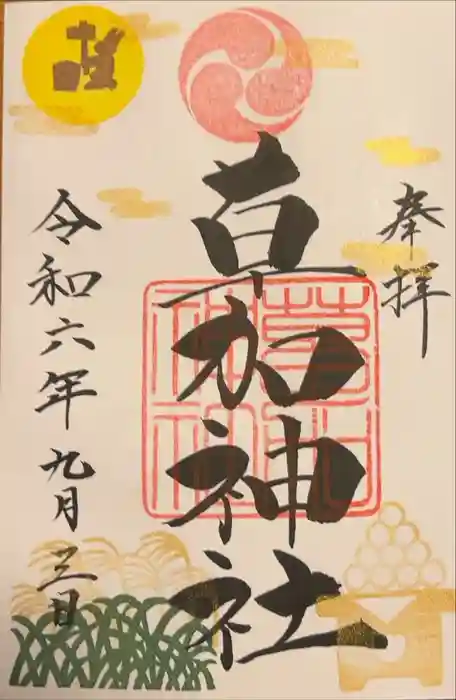 奉拝
草加神社
令和六年九月三日